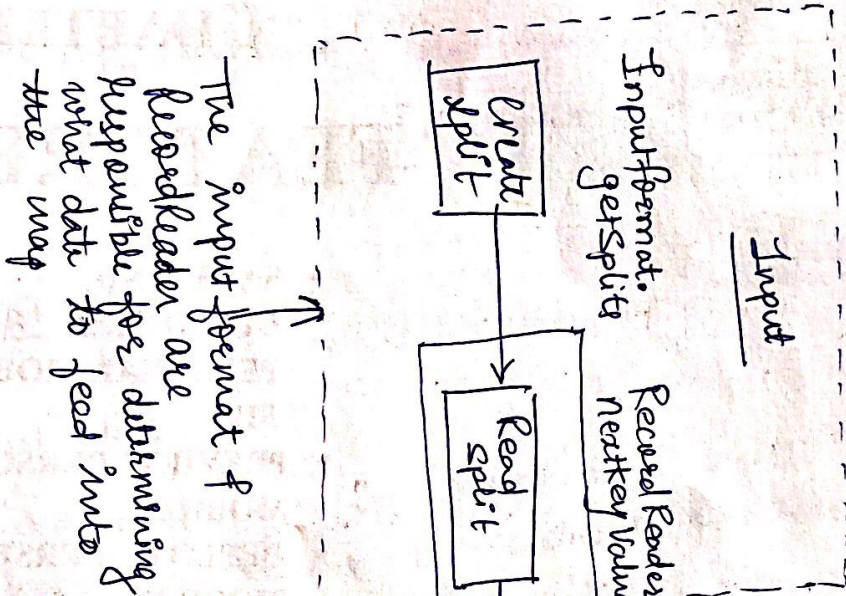 Input
Inputformat.
getSplits
RecordReader
nextKeyValu
Create
split
Read
split
The input format &
RecordReader are
responsible for determining
what data to feed into
the map